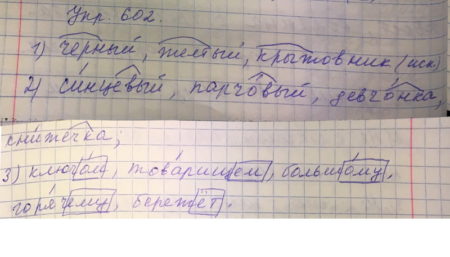 Упр. 602.
1) чёрный, желтый, крыжовник (иск)
2) си́нцевый, парчо́вый, девчо́нка,
кни́жечка;
3) ключо́м, това́рищем, большо́му,
горя́чему, бережёт.